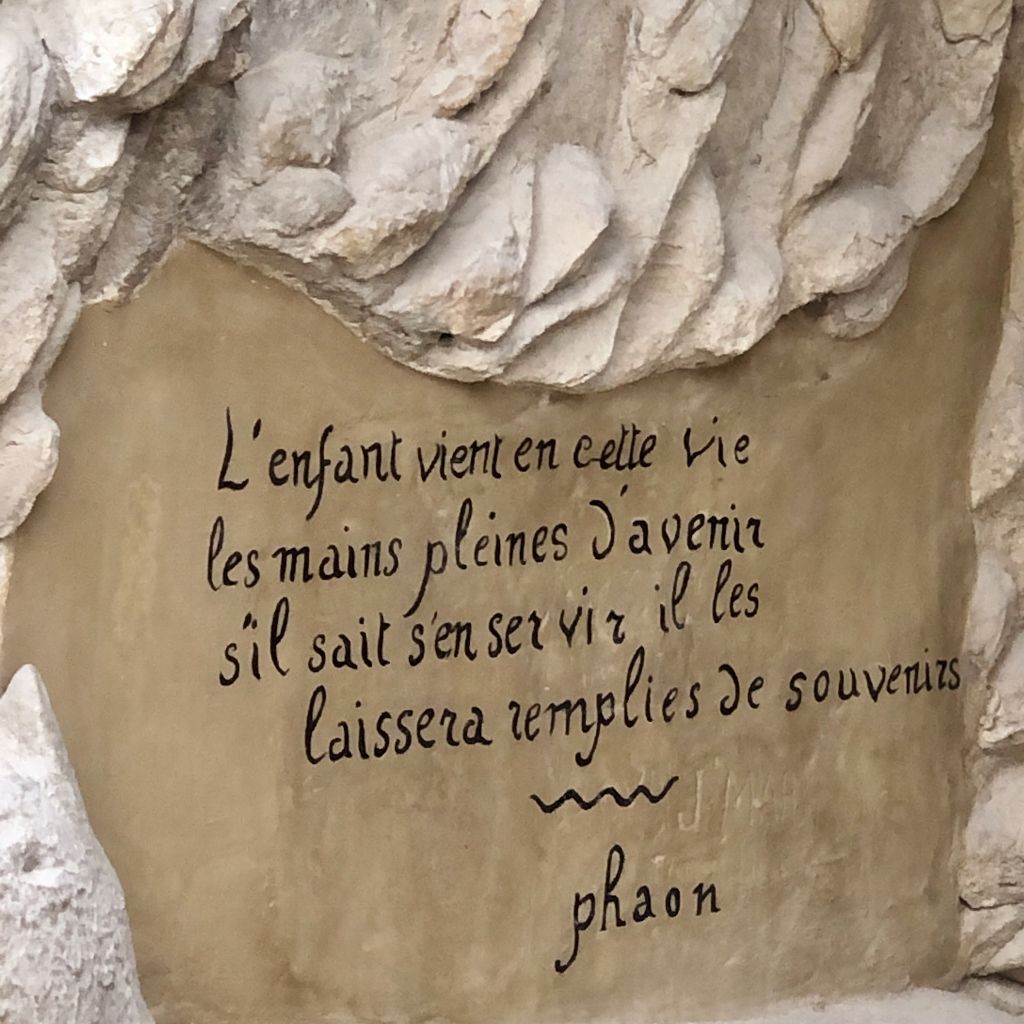 L'enfant vient en cette vie
les mains pleines d'avenir
s'il sait s'en servir il les
laissera remplies de souvenirs
phaon